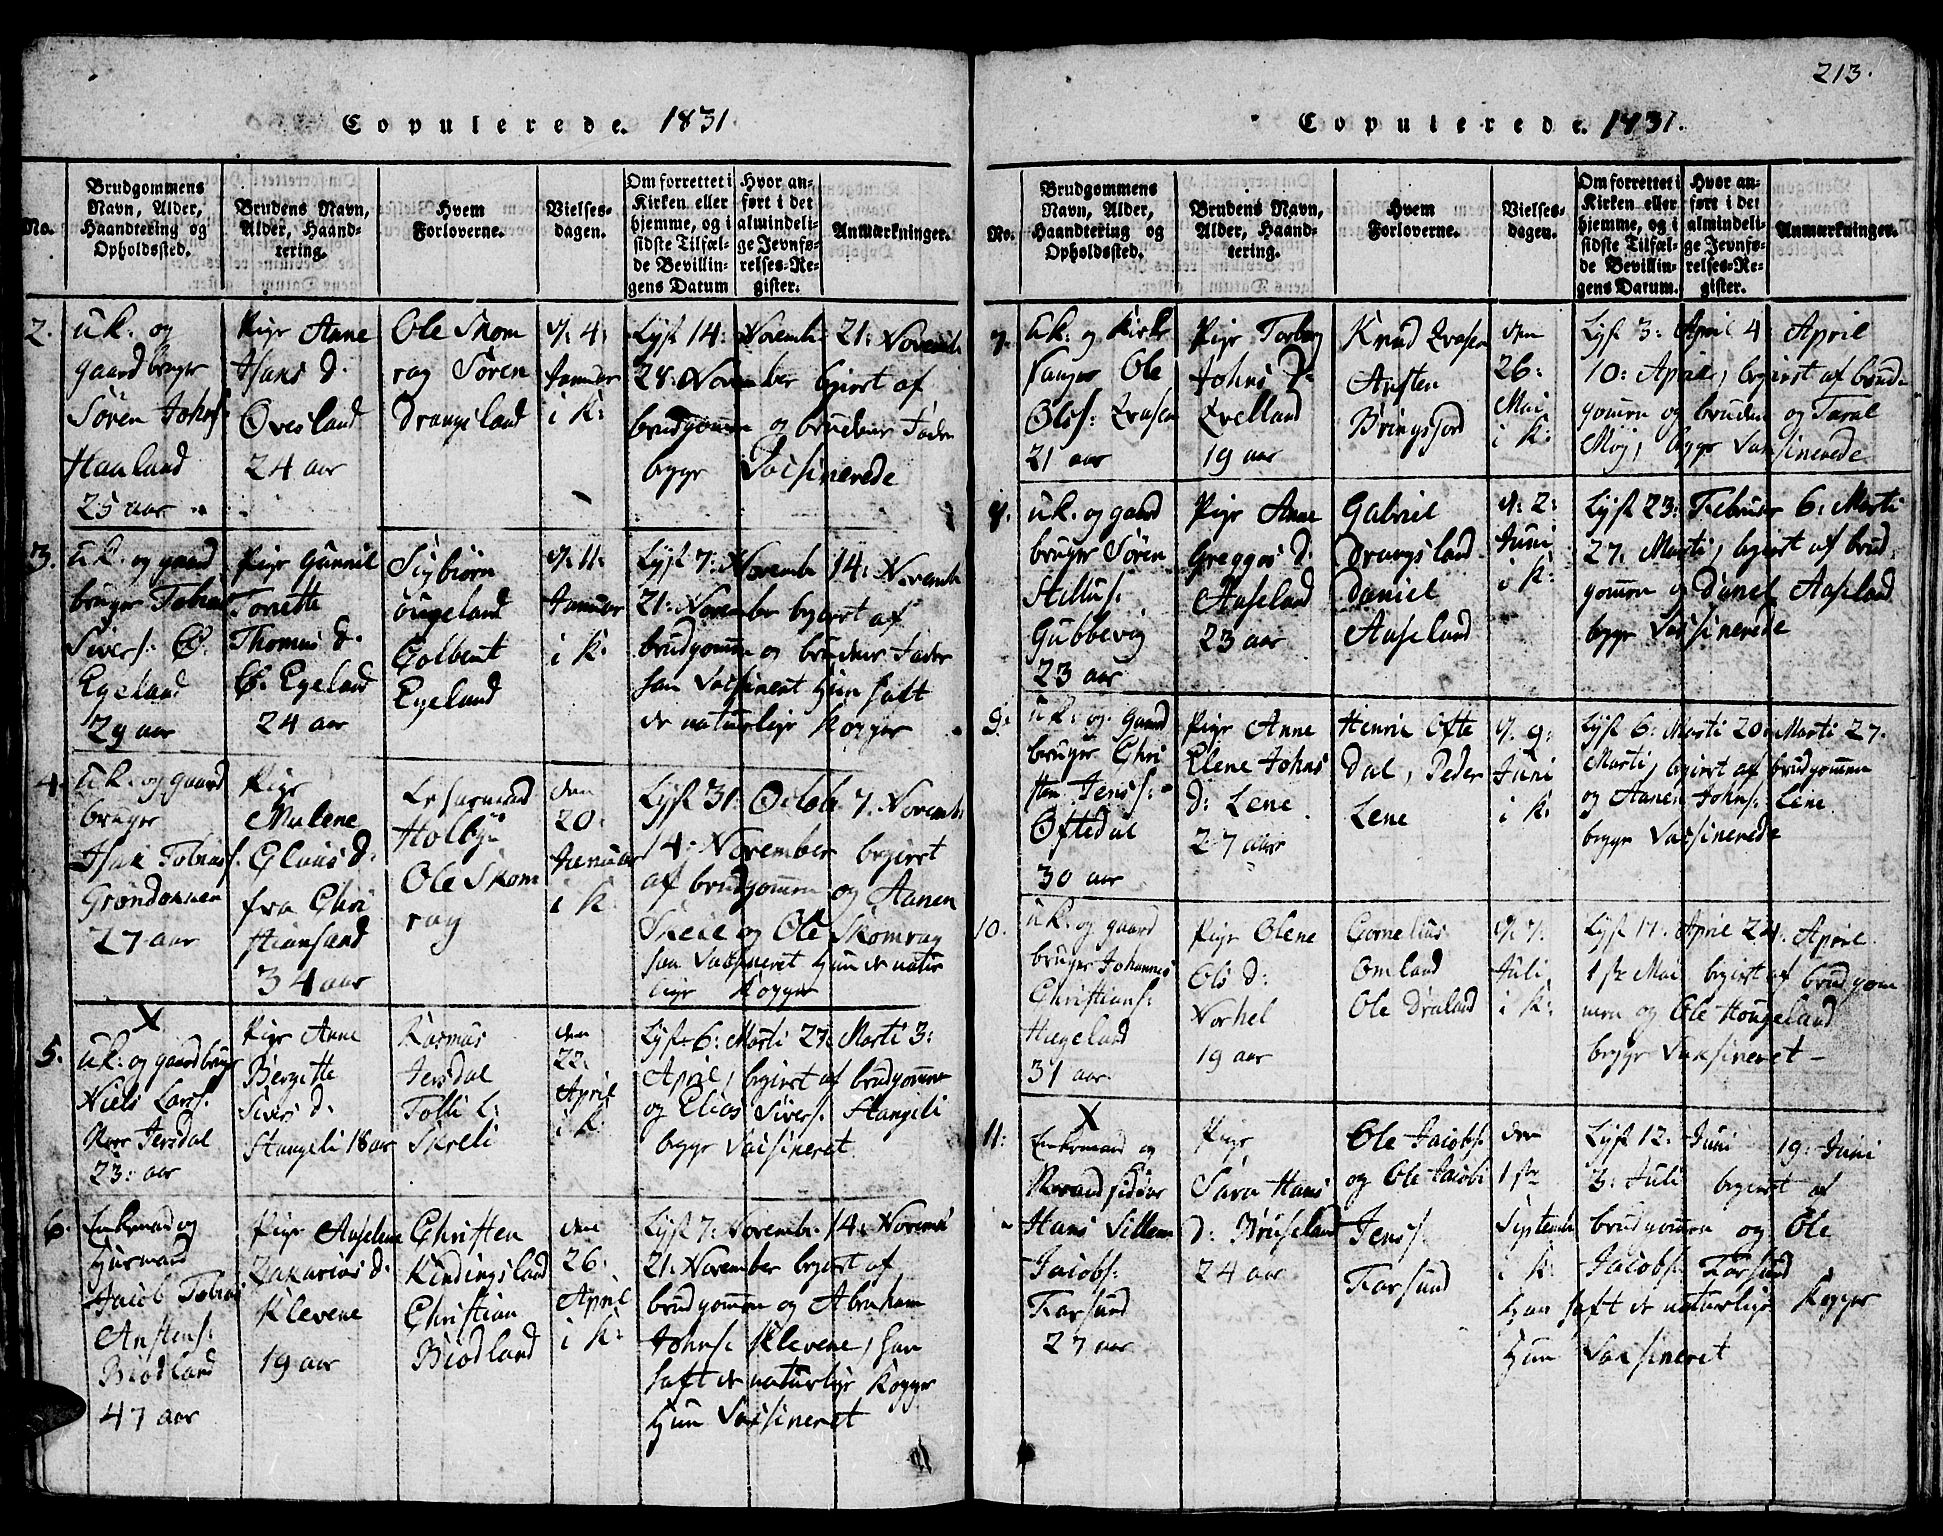 Copulerede. 1831
No.
Brudgommens
Navn, Alder,
Haandtering og
Opholdssted.
Brudens Navn,
Alder, Haand-
tering.
Hvem
Forloverne.
Vielses-
dagen.
Om forrettet i
Kirken eller
hjemme, og i
sidste Tilfæl-
de Bevillin-
gens Datum
Hvor an-
ført i det
almindeli-
ge Jevnfø-
relses-Re-
gister.
Anmærkninger.
2.
uk. og
gaardbruger
Sören Johns:
Haaland
25 aar
Pige Anne
Hans d.
Övesland
24 aar
Ole Skom
rag Sören
Drangsland
d. 4:
Januar
i K:
Lyst 14: Novemb 21: Novemb
28: November begiert af
brudgommen og brudens Fader
begge Vacsinerede
3.
uk. og gaard
bruger Tobias
Sivers: Ö.
Egeland
29 aar
Pige Gunnil
Tonette
Thomas d.
Ö. Egeland
24 aar
Sigbiörn
Egeland
Egeland
d. 11:
Januar
i K:
Lyst 7: Novemb 14: Novemb
21: November begiert af
brudgommen og brudens Fader
han Vacsineret Hun haft
de naturlige Kopper
4.
uk. og gaard
bruger
Isak Tobias:
Gröndokken
27 aar
Pige
Malene
Claus d:
fra Chri
stiansand
34 aar
Ole Skom
rag
den
20:
Januar
i K:
Lyst 31: Octob 7: Novemb
14: November begiert
af brudgommen og Aanen
Skeie og Ole Skomrag
han Vacsineret Hun de natur
lige Kopper
X
5.
uk: og gaardbruger
Niels Lars:
Jersdal
23: aar
Pige Anne
Bergitte
Sivers d:
Stangeli 18 aar
Rasmus
Jersdal
Skreli
den
22:
April
i K:
Lyst 6: Marti 27: Marti 3:
April, begiert af brudgommen
og Elias Sivers: Stangeli
begge Vacsineret
6.
Enkemand og
Huusmand
Jacob Tobias
Austens:
Biodland
47 aar
Pige Anselene
Zakarias d:
Klevene
19 aar
Christen
Kindingsland
Christian
Biodland
den
26:
April
i K:
Lyst 7: Novemb: 14: Novemb
21: November begiert af
brudgommen og Abraham
Johns: Klevene, han
haft de naturlige Kopper
Hun Vacsineret
213.
Copulerede. 1831.
No.
Brudgommens
Navn, Alder,
Haandtering og
Opholdssted.
Brudens Navn,
Alder, Haand-
tering.
Hvem
Forloverne.
Vielses-
dagen.
Om forrettet i
Kirken eller
hjemme, og i
sidste Tilfæl-
de Bevillin-
gens Datum.
Hvor an-
ført i det
almindeli-
ge Jevnfø-
relses-Re-
gister.
Anmærkninger.
7.
uk. og Kirke
sanger Ole
Ols:
21 aar
Pige Torborg
Johns d:
Qvelland
19 aar
Knud
Austen
Bringsjord
den
26:
Mai
i K:
Lyst 3: April 4: April
10: April, begiert af brud-
gommen og bruden og Taral
Möj, begge Vacsinerede
8.
uk. og gaard
bruger Sören
Gubbevig
23 aar
Pige Anne
Greggos d:
Aaseland
23 aar
Gabriel
Drangsland
Daniel
Aaseland
d: 2:
Juni
i K:
Lyst 23: Februar 6: Marti
27: Marti, begiert af brud-
gommen og Daniel Aaseland
begge Vacsinerede
9:
uk: og gaard
bruger Chri
sten Jens:
Oftedal
30 aar
Pige Anne
Elene Johns
d: Lene
27 aar
Henrik Ofte
dal, Peder
Lene
d. 9:
Juni
i K:
Lyst 6: Marti 20: Marti 27.
Marti, begiert af brudgommen
og Aanen Johns: Lene
begge Vacsinerede
10.
uk. og gaard
bruger Johannes
Christians:
Hægeland
31 aar
Pige Olene
Ols d:
Norhel
19 aar
Cornelius
Omland
Ole Draland
d. 7:
Juli
i K:
Lyst 17: April 24: April
1ste Mai begiert af brudgom-
men og Ole Hougeland
begge Vacsineret -
X
11:
Enkemand og
Hans Sillem
Jacobs:
Farsund
27 aar
Pige
Sara Hans
d: Bruseland
24 aar
Ole Jacobs:
og Ole Jacobs
Jens:
Farsund
den
1ste
Septemb
i K:
Lyst 12: Juni 19: Juni
3: Juli begiert af
brudgommen og Ole
Jacobs: Farsund
Han haft de naturlige Kopper
Hun Vacsineret